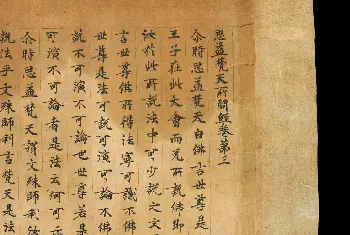 思益梵天所問經卷第三
尒時思益梵天白佛言世尊是
王子在此大會而无所說佛即
汝於此所說法中可少說之文
言世尊佛所得法寧可識不佛
世尊是法可說可演可論不佛
說不可演不可論也世尊若是
可演不可論者是法云何可示
尒時思益梵天謂文殊師利汝
說法乎文殊師利言梵天是法